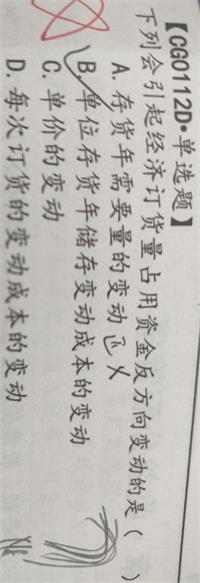 【CG0112D•单选题】
下列会引起经济订货量占用资金反方向变动的是（ ）
A. 存货年需要量的变动
B. 单位存货年储存变动成本的变动
C. 单价的变动
D. 每次订货的变动成本的变动